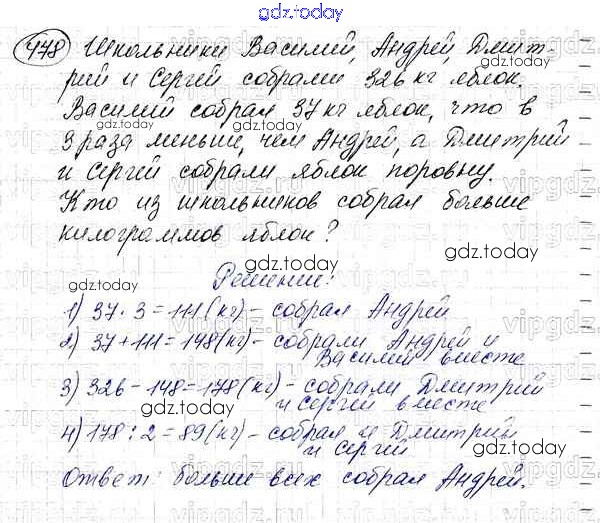 gdz.today
478 Школьники Василий, Андрей, Дмит-
рий и Сергей собрали 326 кг яблок.
gdz.today
Василий собрал 37 кг яблок, что в
3 раза меньше, чем Андрей, а Дмитрий
gdz.today
и Сергей собрали яблок поровну.
Кто из школьников собрал больше
gdz.today
килограммов яблок?
gdz.today
Решение:
gdz.today
1) 37 · 3 = 111 (кг) - собрал Андрей
2) 37 + 111 = 148 (кг) - собрали Андрей и
Василий вместе
gdz.today
3) 326 - 148 = 178 (кг) - собрали Дмитрий
и Сергей вместе
gdz.today
4) 178 : 2 = 89 (кг) - собрал и Дмитрий
и Сергей
gdz.today
Ответ: больше всех собрал Андрей.